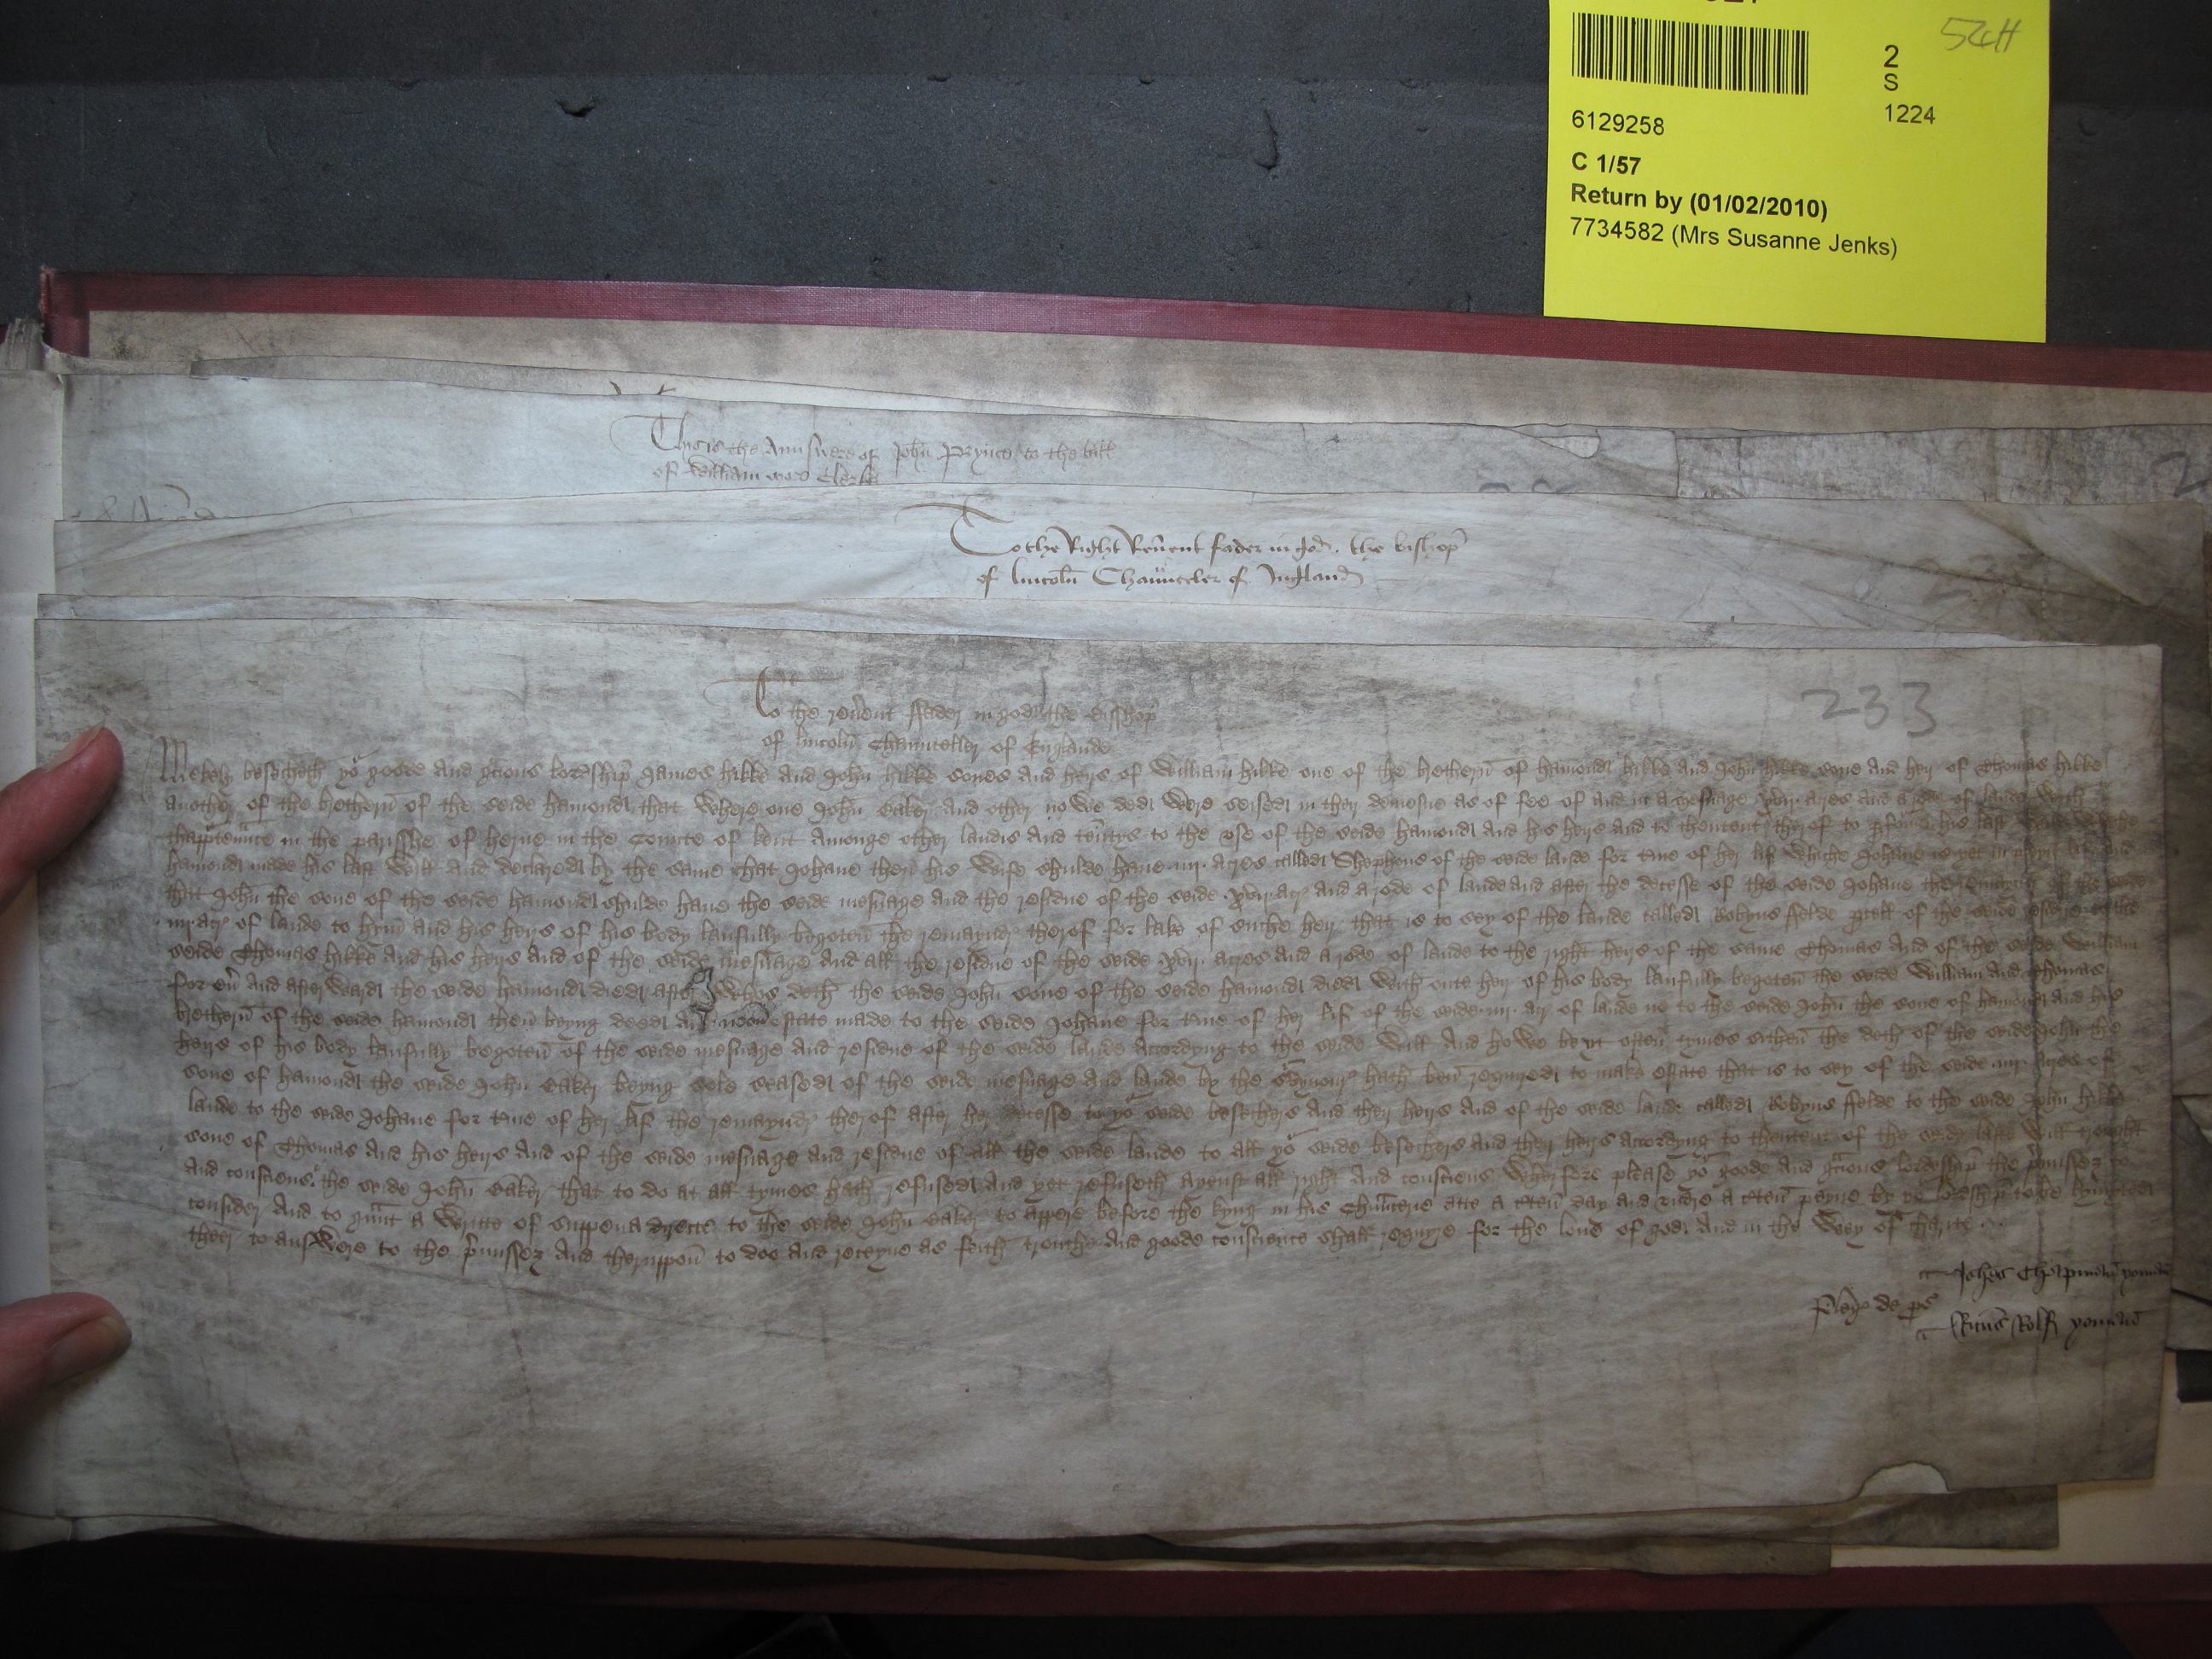 52cH
2
S
1224
6129258
C 1/57
Return by (01/02/2010)
7734582 (Mrs Susanne Jenks)
This is the Answere of John Prynce to the bill
of William Clerke
To the Right Reu̅ent fader in god the bishop
of lincoln̅ Chaunceler of Ingland
233
To the reu̅ent ffader in god the Bisshop
of lincoln̅ Chaunceller of Englande
Mekely besecheth yor goode and gracious lordship James hikke and John̅ hikke sones and heirs of William hikke one of the bethern̅ of hamond hikke and John hikke sone and heir of Thomas hikke
another of the bethern̅ of the seide hamond that where one John̅ Baker and other nowe ded were seised in their demesne as of fee of and in a mesuage xvij acres and a rode of lande with
thapp̅ten̅nce in the parisshe of herne in the Counte of kent amonge other landis and ten̅ntys to the vse of the seide hamond and his heirs and to thentent therof to p̅fourme his last
hamond made his last will and declared by the same that Johane then his wife shulde haue iiij acres called Shophous of the seide lande for t̅me of her lif whiche Johane is yet in
that John̅ the sone of the seide hamond shulde haue the seide mesuage and the residue of the seide xvij acr̅ and a rode of lande and after the decesse of the seide Johane the remayndr̅ of the seide
iiij acr̅ of lande to hym̅ and his heirs of his body laufully begoten̅ the remayndr̅ therof for lake of suche heir that is to sey of the lande called Robyns ffelde p̅cell of the seide
seide Thomas hikke and his heirs and of the seide mesuage and all the residue of the seide xvij acres and a rode of lande to the right heirs of the same Thomas and of the seide William
for eu̅ and afterward the seide hamond died after whos deth the seide John̅ sone of the seide hamond died with oute heir of his body laufully begoten̅ the seide William and Thomas
bethern̅ of the seide hamond then̅ beyng deed and noon̅ estate made to the seide Johane for t̅me of her lif of the seide iiij acr̅ of lande ne to the seide John̅ the sone of hamond and his
heirs of his body laufully begoten̅ of the seide mesuage and residue of the seide lande accordyng to the seide will And howe be yt often̅ tymes sithen̅ the deth of the seide John the
sone of hamond the seide John̅ Baker beyng sole seased of the seide mesuage and lande by the hath ben̅ required to make estate that is to sey of the seide iiij acres of
lande to the seide Johane for t̅me of her lif the remayndr̅ ther of after her decesse to yor seide besechers and their heirs And of the seide lande called Robyns ffelde to the seide John hikke
sone of Thomas and his heirs And of the seide mesuage and residue of all the seide lande to all yor seide besechers and their heirs accordyng to thentent of the seide last will
and consciens the seide John̅ Baker that to do at all tymes hath refused and yet refuseth ayenst all right and consciens Wherfore please yor goode and gracious lordeship the p̅misses to
consider and to gr̅nt a writte of suppena directe to the seide John̅ Baker to appere before the kyng in his Chauncerie atte a c̅ten̅ day and vndre a c̅ten̅ peyne by yor lordeship to be lymyted
ther to answere to the p̅misses And theruppon̅ to doo and receyue as feith trouthe and goode conscience shall require for the loue of god And in the wey of charite
Joh̅es Chapman̅
Pleg̅ de p̅s̅
Ric̅us Rolf yoman̅